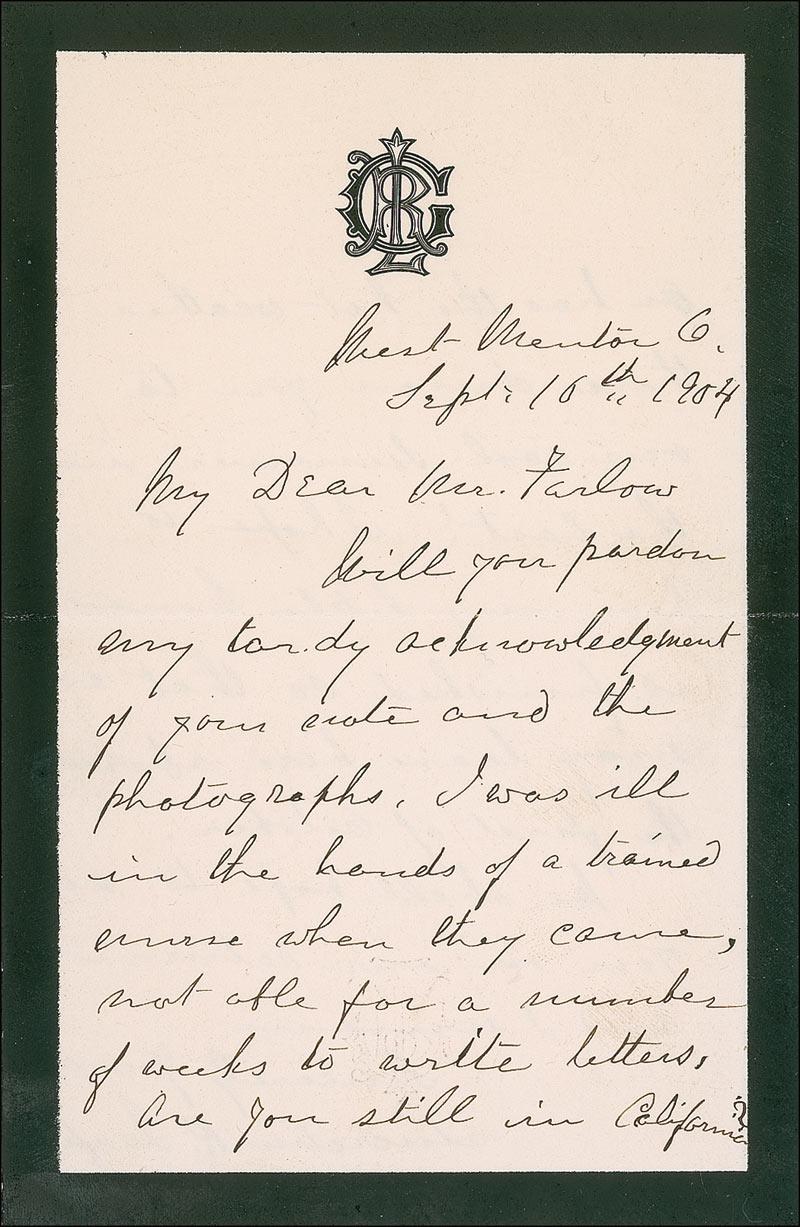 West Mentor O.
Sept. 10th 1904
My Dear Mr. Farlow
Will you pardon
my tardy acknowledgment
of your note and the
photographs. I was ill
in the hands of a trained
nurse when they came,
not able for a number
of weeks to write letters.
Are you still in California?